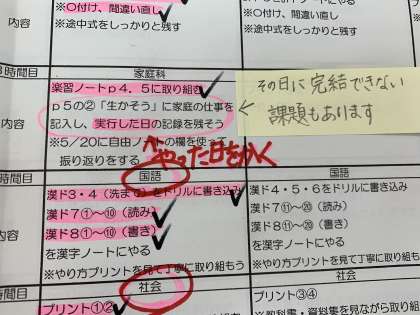 ※〇付け、間違い直し
※途中式をしっかりと残す
※途中式をしっかりと残す
内容
3時間目
家庭科
楽習ノートp4、5に取り組む
p5の②「生かそう」に家庭の仕事を
記入し、実行した日の記録を残そう
※5/20に自由ノートの欄を使って
振り返りをする
内容
その日に完結できない
課題もあります
やった日をかく
国語
国語
漢ド3・4(洗まで)をドリルに書き込み
漢ド7①~⑩(読み)
漢ド8①~⑩(書き)
を漢字ノートにやる
※やり方プリントを見て丁寧に取り組もう
内容
漢ド4・5・6をドリルに書き込み
漢ド7⑪~⑳(読み)
漢ド8⑪~⑳(書き)
を漢字ノートにやる
※やり方プリントを見て丁寧に取り組もう
時間目
社会
社会
プリント①②
プリント③④
※教科書・資料集を見ながら取り組